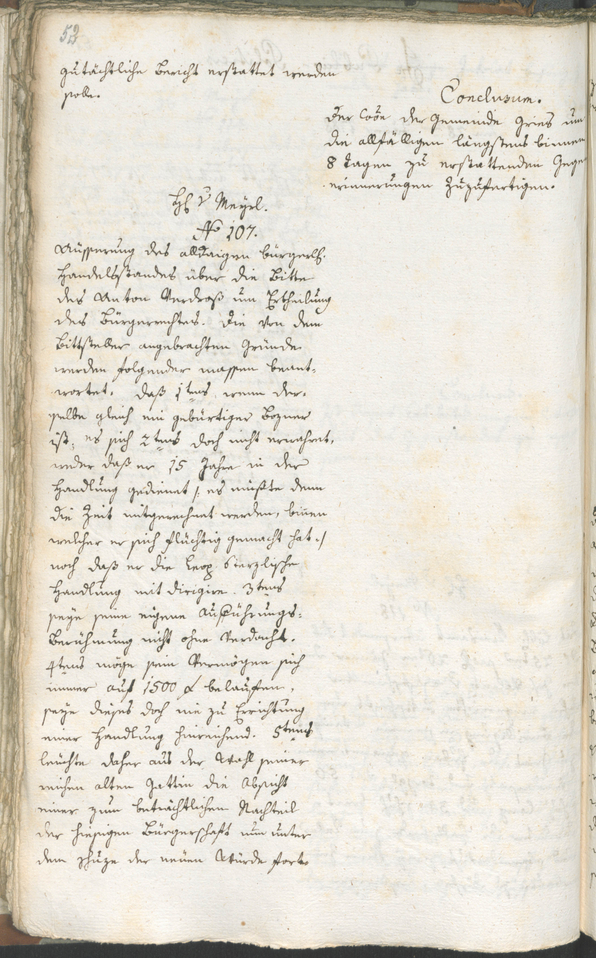 52
gutächtliche Bericht erstattet werden
solle.
Conclusum.
Der Coön der Gemeinde Gries um
die allfälligen längstens binnen
8 tagen zu erstattenden Gege
erinnerungen zuzufertigen.
H. v Meyrl.
No 107.
Äusserung des alldaigen bürgerl.
Handelsstandes über die Bitte
des Anton Verdroß um Ertheilung
des Bürgerrechtes. Die von dem
Bittsteller angebrachten Gründe
werden folgender massen beant-
wortet. Daß 1tens wenn der-
selbe gleich ein gebürtiger Bozner
ist, es sich 2tens doch nicht erwahret,
weder daß er 15 Jahre in der
Handlung gedienet /: es müßte denn
die Zeit mitgerechnet werden, binnen
welcher er sich flüchtig gemacht hat :/
noch daß er die Leop. Sterzlische
Handlung mit dirigire. 3tens
seye seine eigene Aufführungs-
Berühmung nicht ohne Verdacht.
4tens möge sein Vermögen sich
immer auf 1500 f belaufen,
seye dieses doch nie zu Errichtung
einer Handlung hinreichend. 5tens
leüchte daher aus der Wahl seiner
reichen alten Gattin die Absicht
einer zum beträchtlichen Nachteil
der hiesigen Bürgerschaft nun unter
dem schuze der neüen Würde fort-